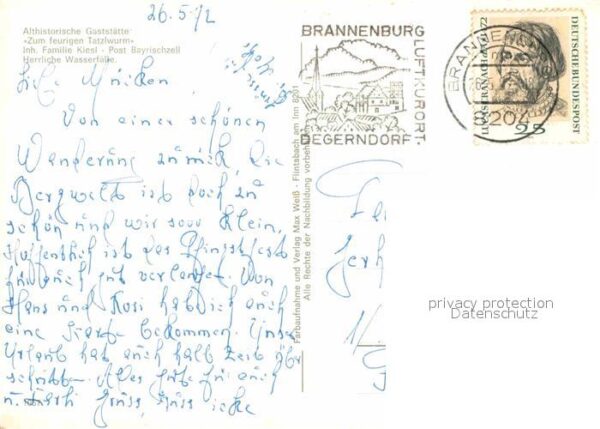 26.5.72
Althistorische Gaststätte
»Zum feurigen Tatzlwurm«
Inh. Familie Kiesl - Post Bayrischzell
Herrliche Wasserfälle.
Von einer schönen
Wanderung zurück, die
Bergwelt ist doch zu
schön und wir sooo klein,
Hoffentlich ist das Pfingstfest
für euch gut verlaufen. Von
Hans und Rosi hab ich auch
eine Karte bekommen. Unser
Urlaub hat auch halb Zeit über
schritten. Alles gute für euch
Gruss, Kuss
Farbaufnahme und Verlag Max Weiß - Flintsbach am Inn 8201
Alle Rechte der Nachbildung vorbehalten
BRANNENBURG
LUFTKURORT
DEGERNDORF
BRANNENBURG
8204
LUCAS CRANACH 1472
DEUTSCHE BUNDESPOST
25
privacy protection
Datenschutz